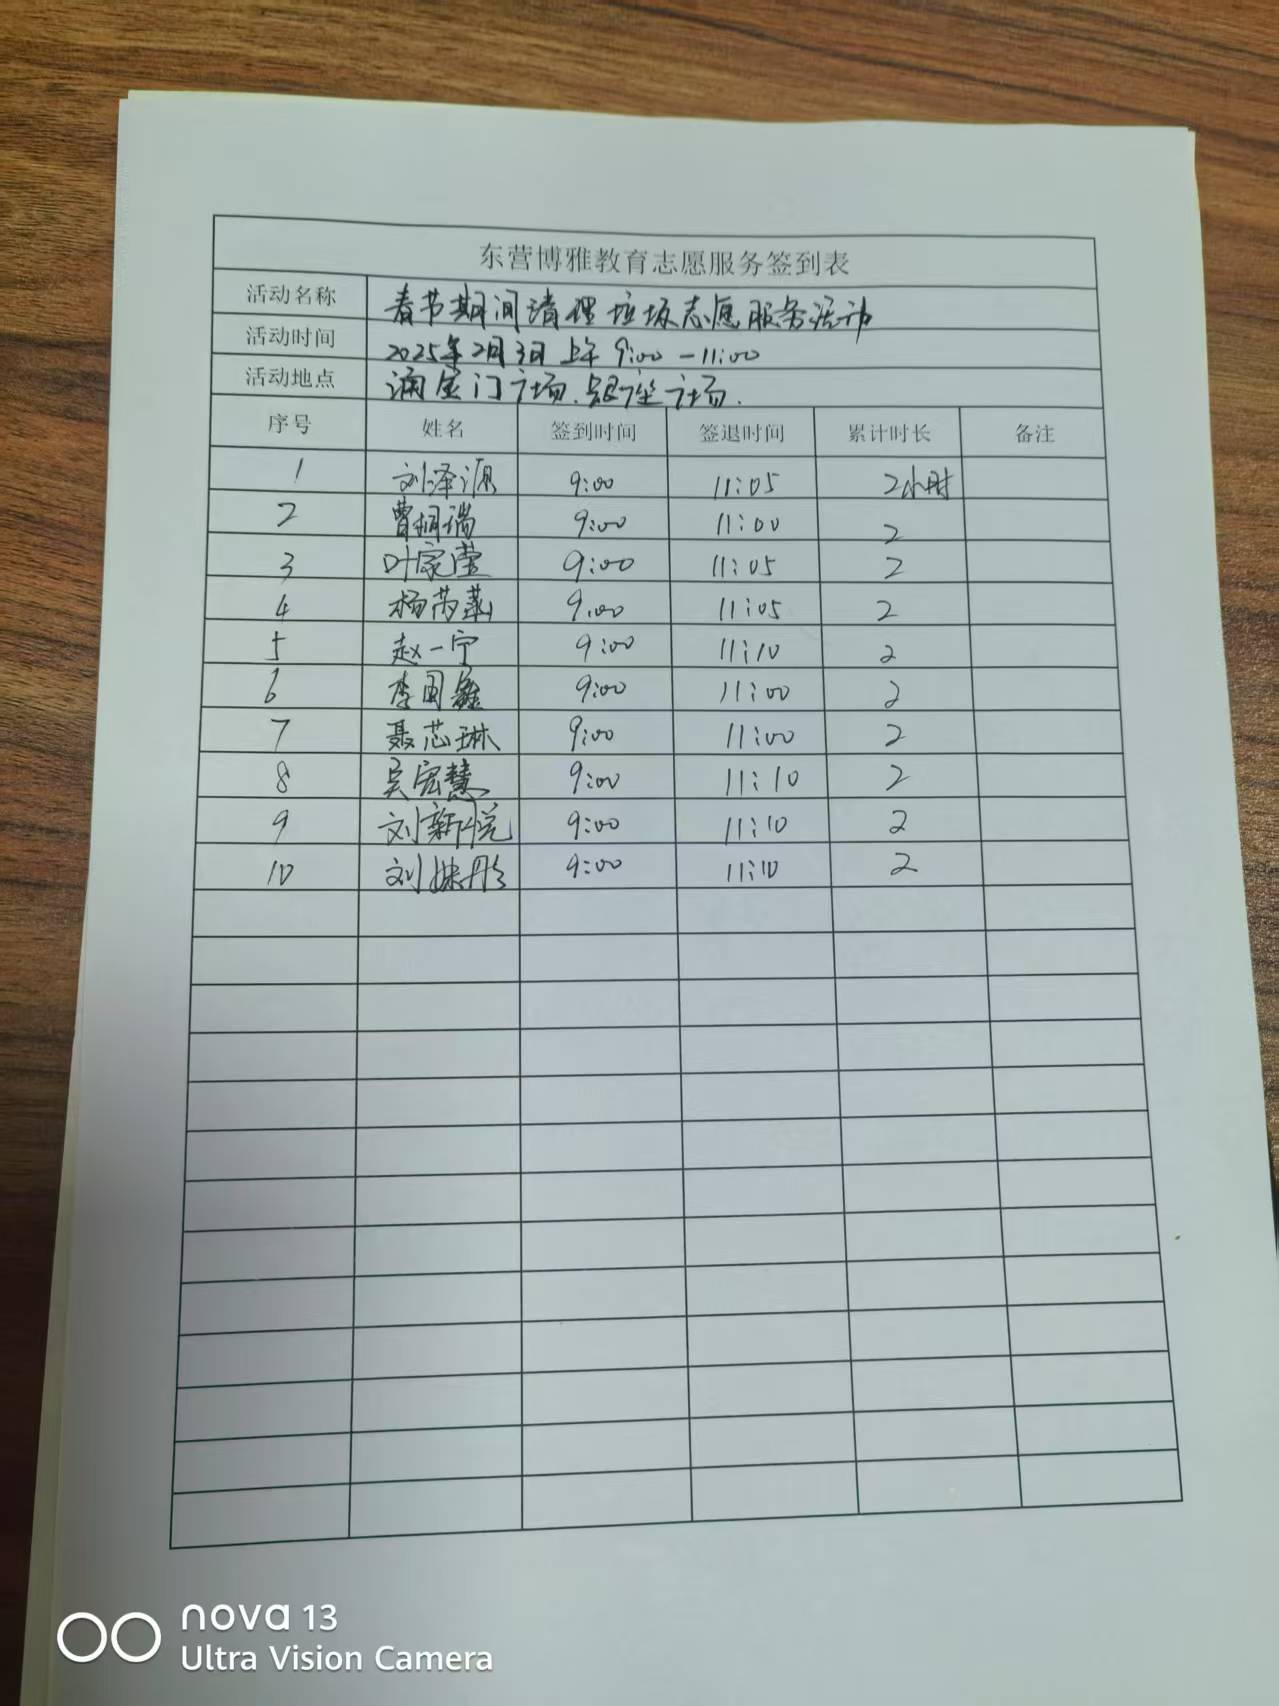 东营博雅教育志愿服务签到表
活动名称 春节期间清理垃圾志愿服务活动
活动时间 2025年2月3日上午 9:00-11:00
活动地点 涌金门广场.银座广场.
序号 姓名 签到时间 签退时间 累计时长 备注
1 刘泽源 9:00 11:05 2小时
2 曹桐瑞 9:00 11:00 2
3 叶家莹 9:00 11:05 2
4 9:00 11:05 2
5 赵一宁 9:00 11:10 2
6 9:00 11:00 2
7 聂芯琳 9:00 11:00 2
8 吴宏慧 9:00 11:10 2
9 刘新悦 9:00 11:10 2
10 刘姝彤 9:00 11:10 2
nova 13
Ultra Vision Camera